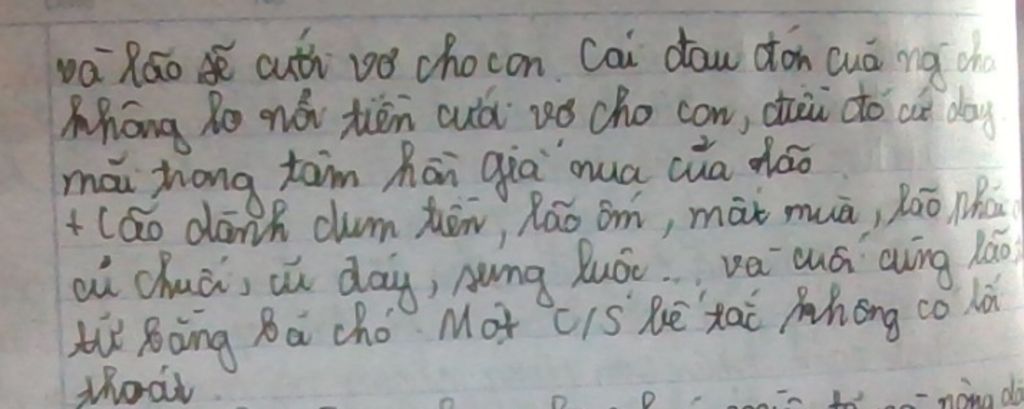 và lão sẽ cưới vợ cho con. Cái đau đớn của ng cha
không lo nổi tiền cưới vợ cho con, điều đó cứ day
mãi trong tâm hồn già nua của lão
+ Lão dành dụm tiền, lão ốm, mất mùa, lão phải
củ chuối, củ dáy, sung luộc... và cuối cùng lão
tử bằng bả chó. Một c/s bế tắc không có lối
thoát.